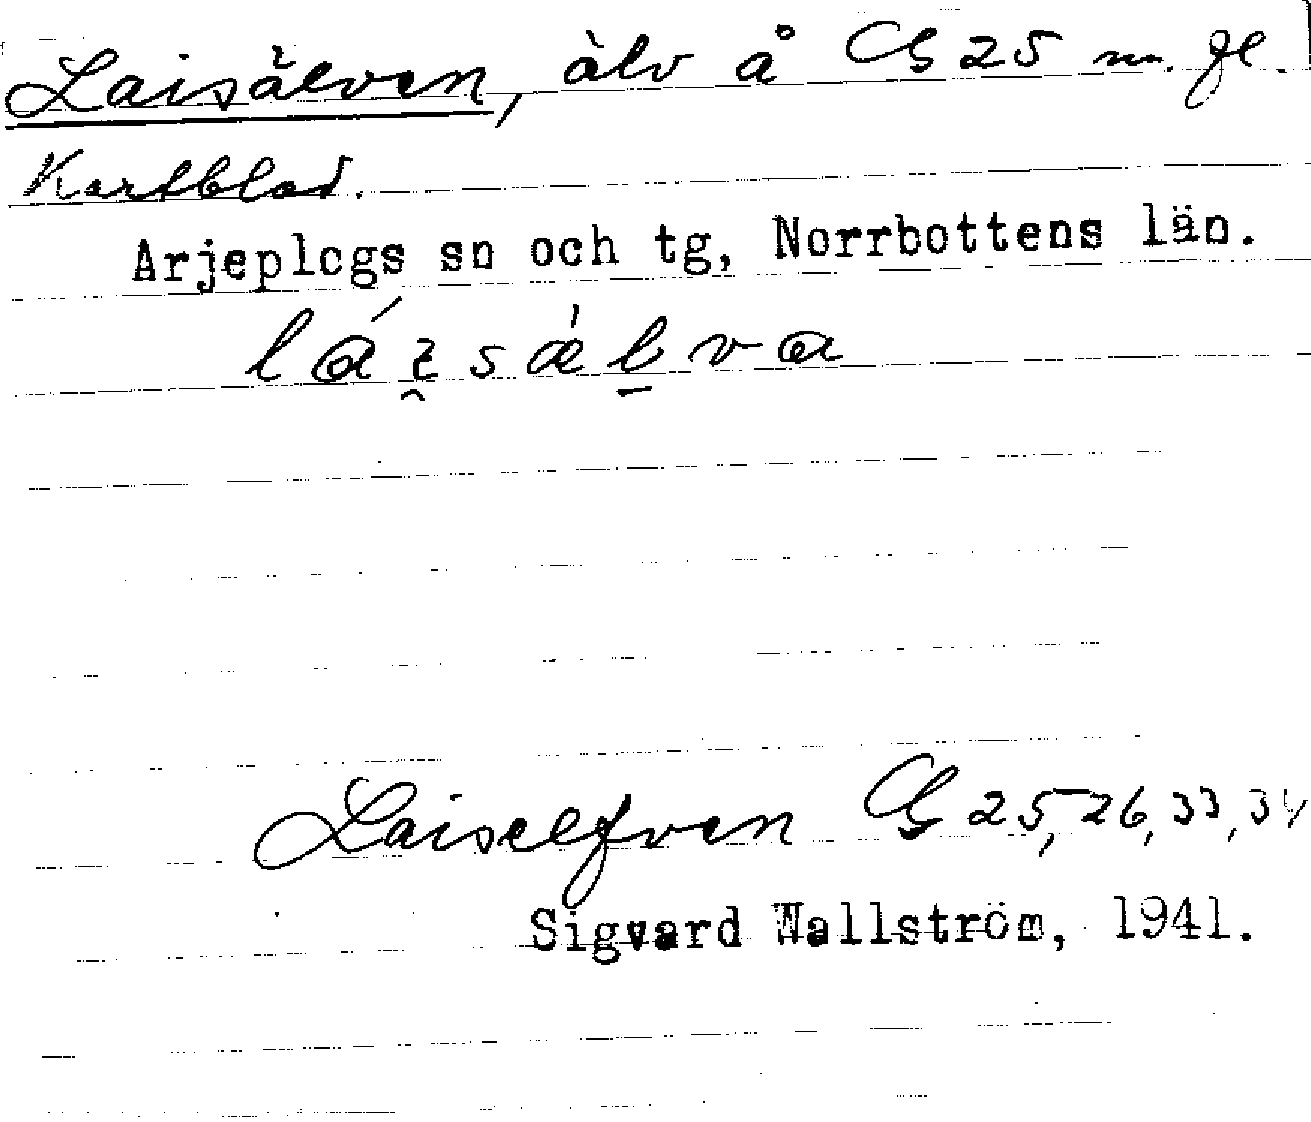 Laisälven, älv å G 25 m. fl.
Kartblad.
Arjeplogs sn och tg, Norrbottens län.
láɪ̯sǽl̠va
Laiselfven G 25, 26, 33, 34
Sigvard Wallström, 1941.